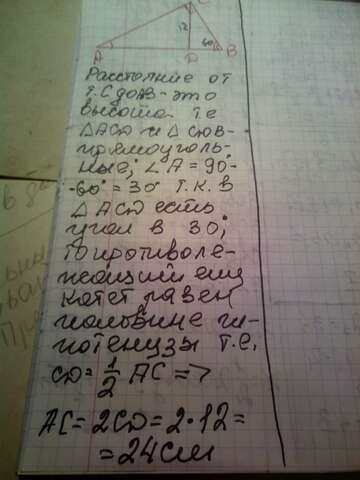 C
12
60
A D B
Расстояние от
т. С до АВ - это
высота т.е
△ACD и △CDB-
прямоуголь-
ные; ∠A = 90°-
-60° = 30° т.к. в
△ACD есть
угол в 30°,
то противоле-
жащий ему
катет равен
половине ги-
потенузы т.е.
CD = 1/2 AC =>
AC = 2CD = 2·12 =
= 24см